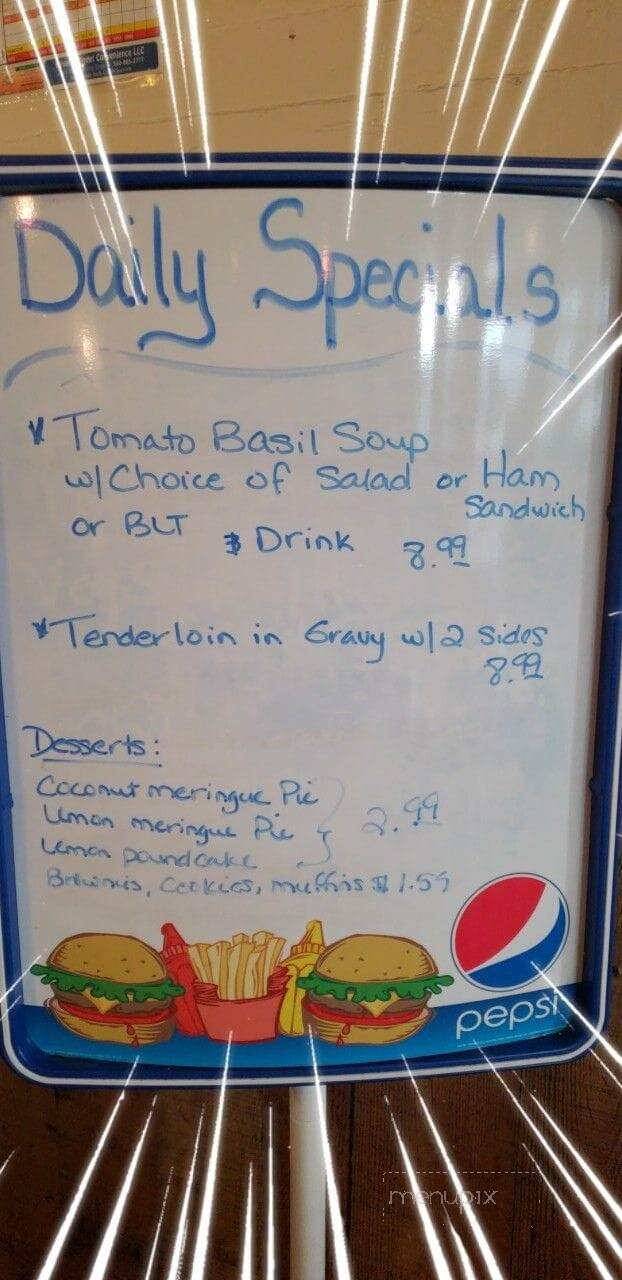 Convenience LLC
Daily Specials
* Tomato Basil Soup
w/ Choice of Salad or Ham
Sandwich
or BLT & Drink 8.99
* Tenderloin in Gravy w/2 sides
8.99
Desserts:
Coconut meringue Pie
Lemon meringue Pie } 2.99
Lemon poundcake
Brownis, Cookies, muffins $1.59
pepsi
menupix